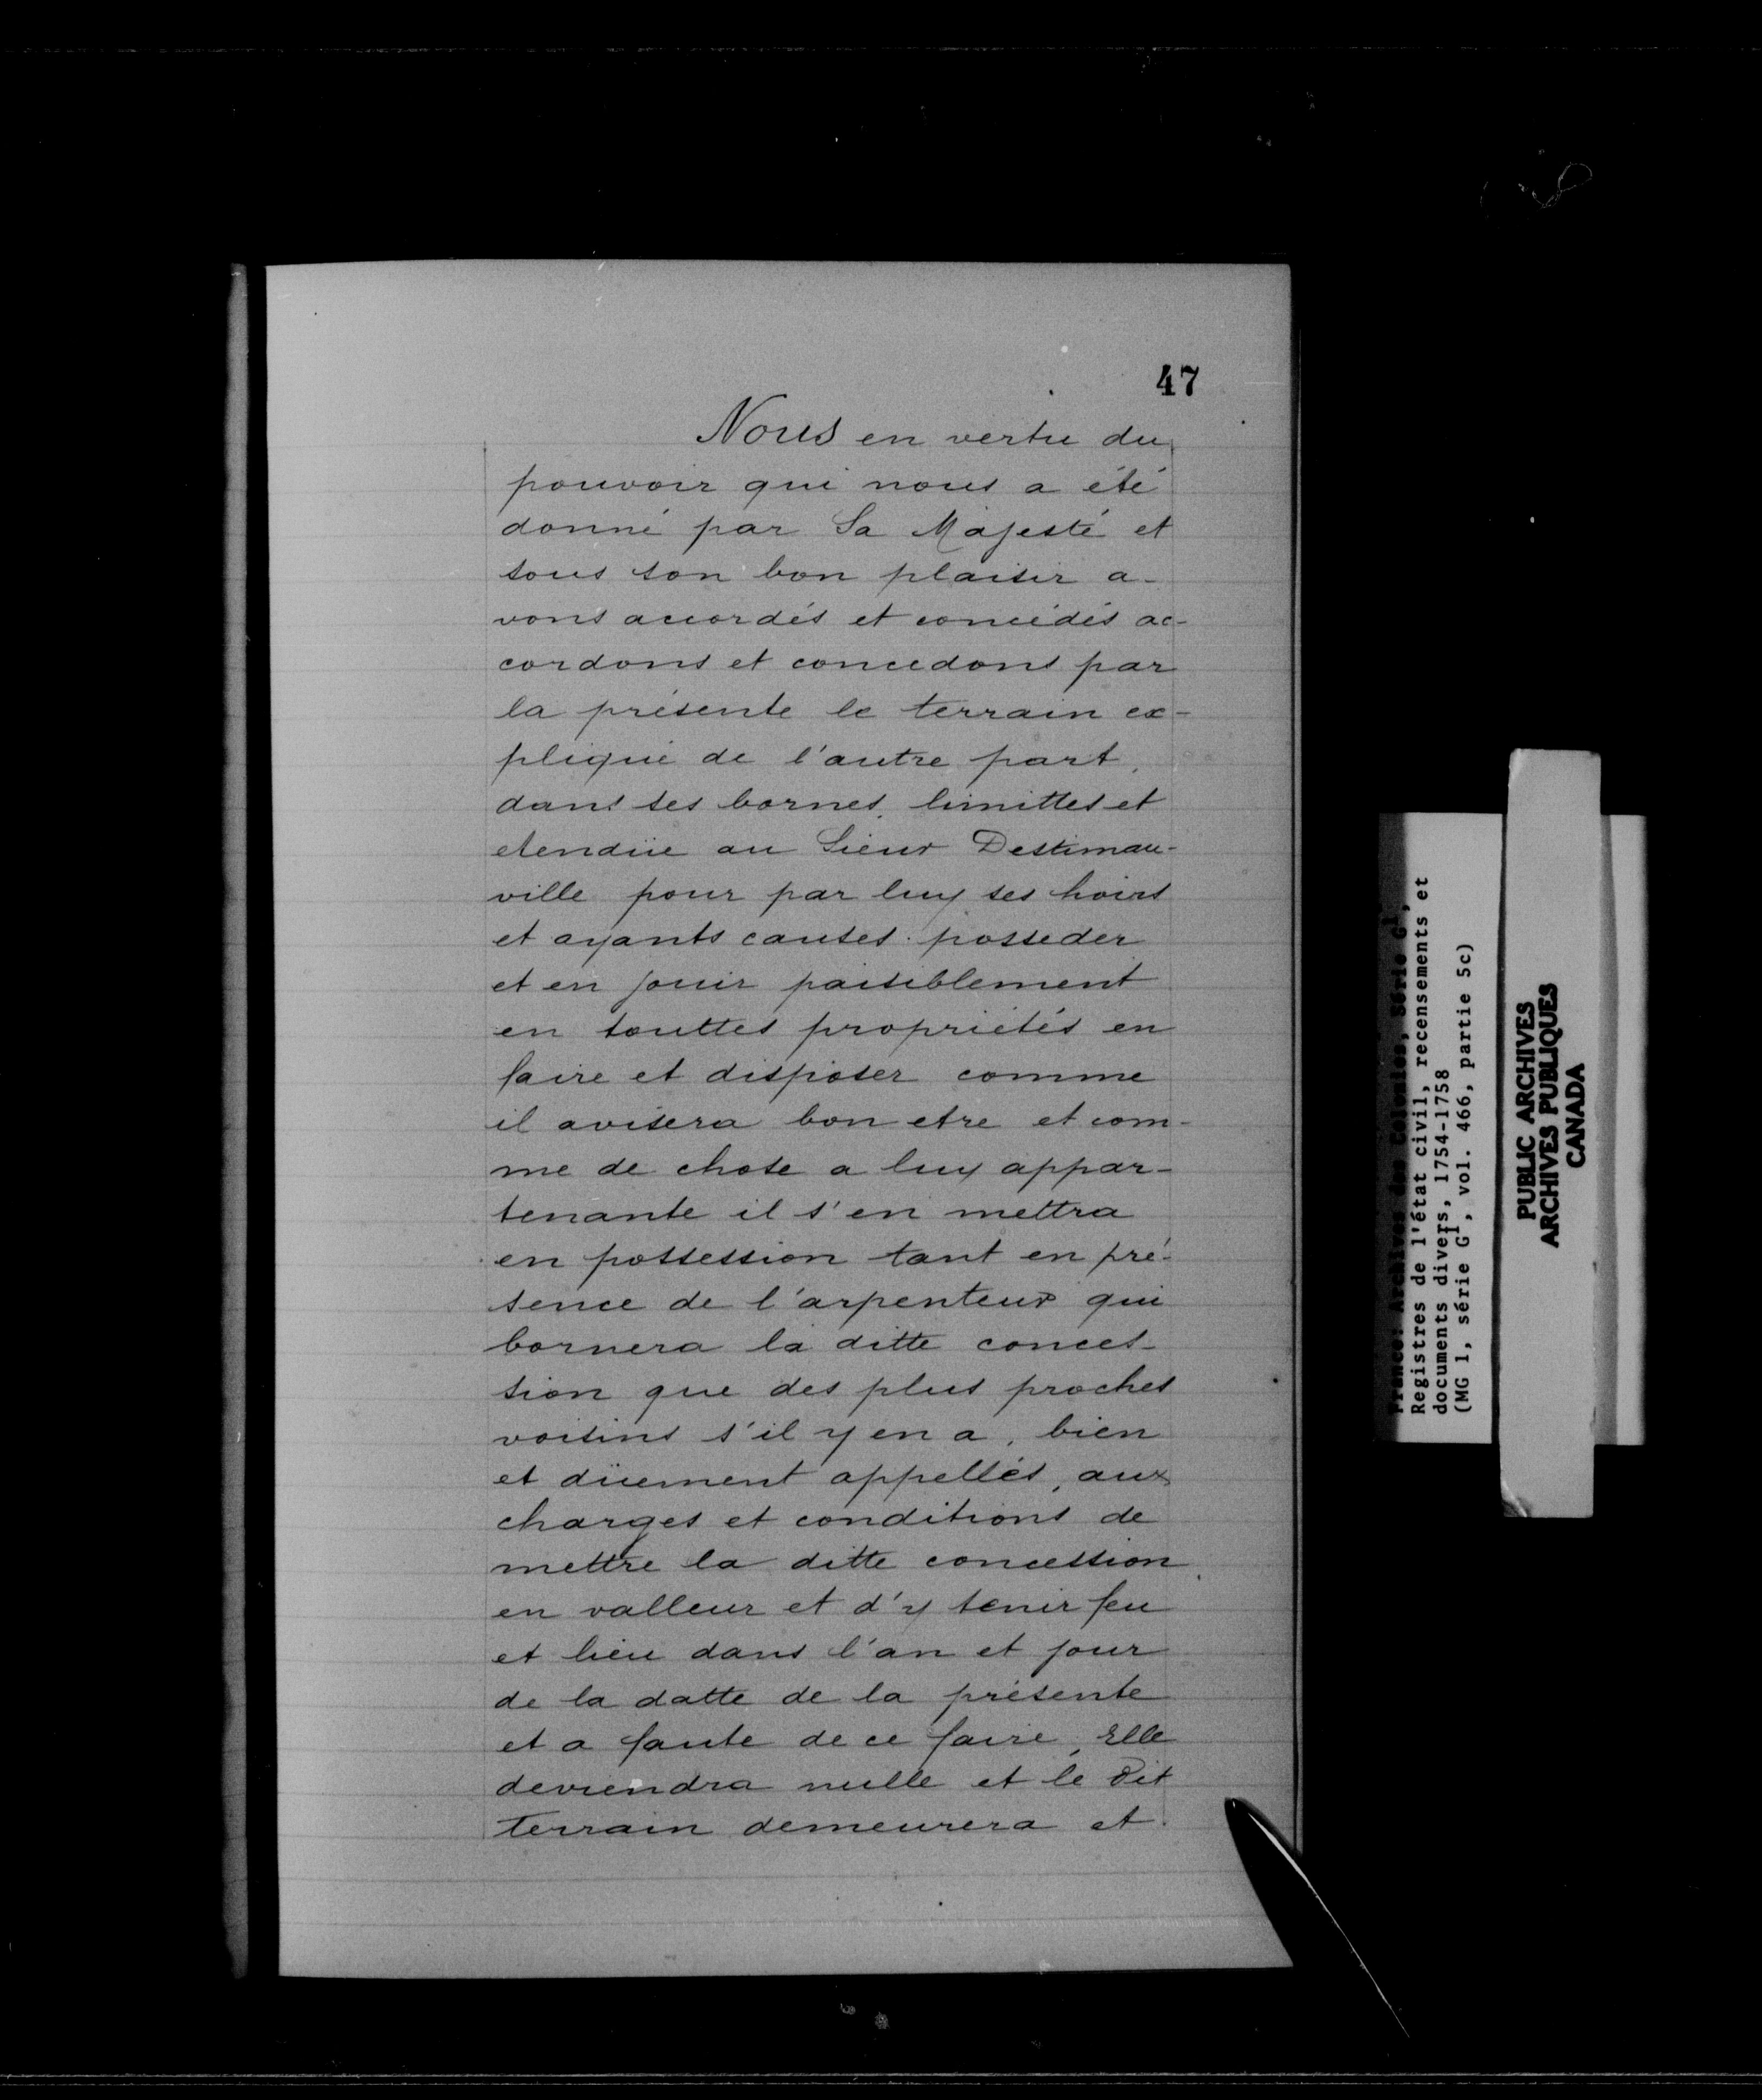 47
Nous en vertu du
pouvoir qui nous a été
donné par Sa Majesté et
sous son bon plaisir a-
vons accordés et concédés ac-
cordons et concedons par
la présente le terrain ex-
pliqué de l'autre part,
dans ses bornes, limittes et
etendüe au Sieur Destimau-
ville pour par luy ses hoirs
et ayants causes posseder
et en jouir paisiblement
en touttes propriétés en
faire et disposer comme
il avisera bon etre et com-
me de chose a luy appar-
tenante il s'en mettra
en possession tant en pré-
sence de l'arpenteur qui
bornera la ditte conces-
sion que des plus proches
voisins s'il y en a, bien
et düement appellés, aux
charges et conditions de
mettre la ditte concession
en valleur et d'y tenir feu
et lieu dans l'an et jour
de la datte de la présente
et a faute de ce faire, Elle
deviendra nulle et le dit
terrain demeurera et
France: Archives des Colonies, Série G¹,
Registres de l'état civil, recensements et
documents divers, 1754-1758
(MG 1, série G¹, vol. 466, partie 5c)
PUBLIC ARCHIVES
ARCHIVES PUBLIQUES
CANADA